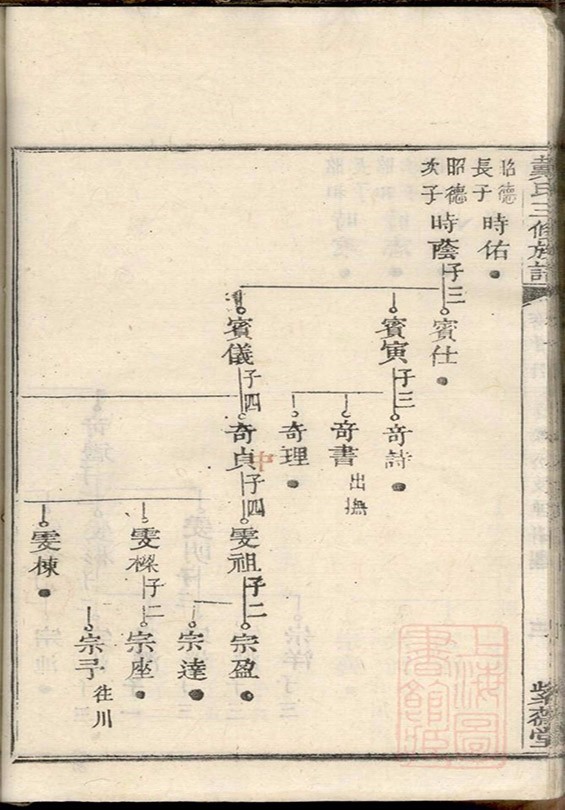 戴氏三修族譜
紫薇堂
昭德
長子
時佑
昭德
次子
時蔭
子三
賓仕
賓寅
子三
賓儀
子四
奇詩
奇書
出撫
奇理
奇貞
子四
中
雯祖
子二
雯樑
子二
雯棟
宗盈
宗達
宗座
宗弓
往川
上海圖
書館藏